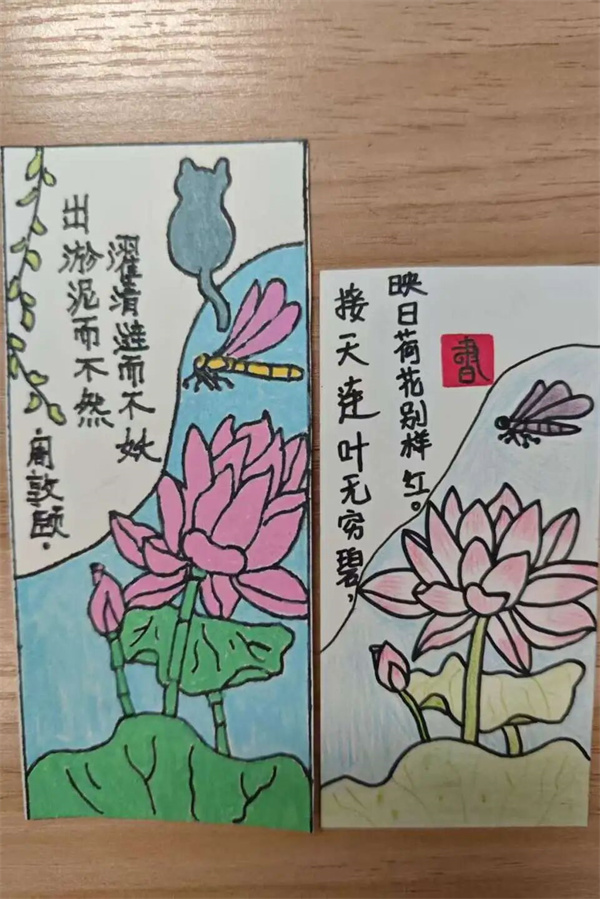 出淤泥而不然
濯清涟而不妖
·周敦颐·
接天连叶无穷碧，
映日荷花别样红。